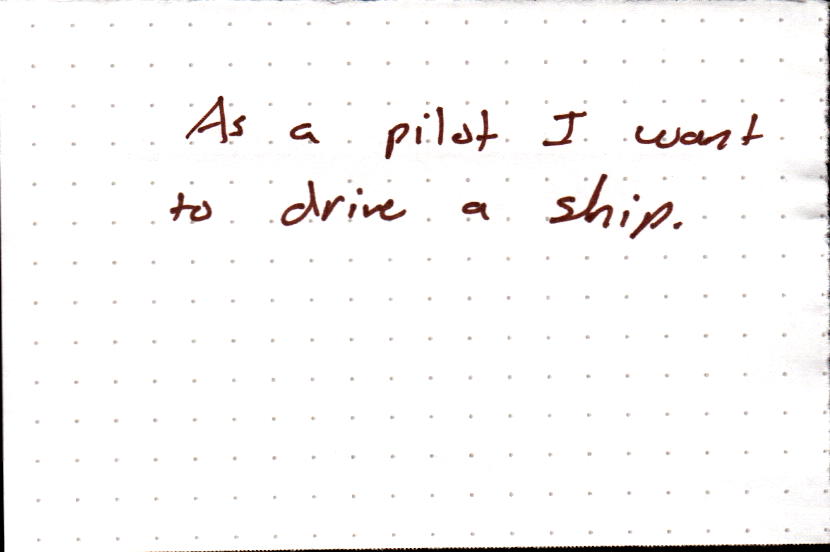 As a pilot I want
to drive a ship.